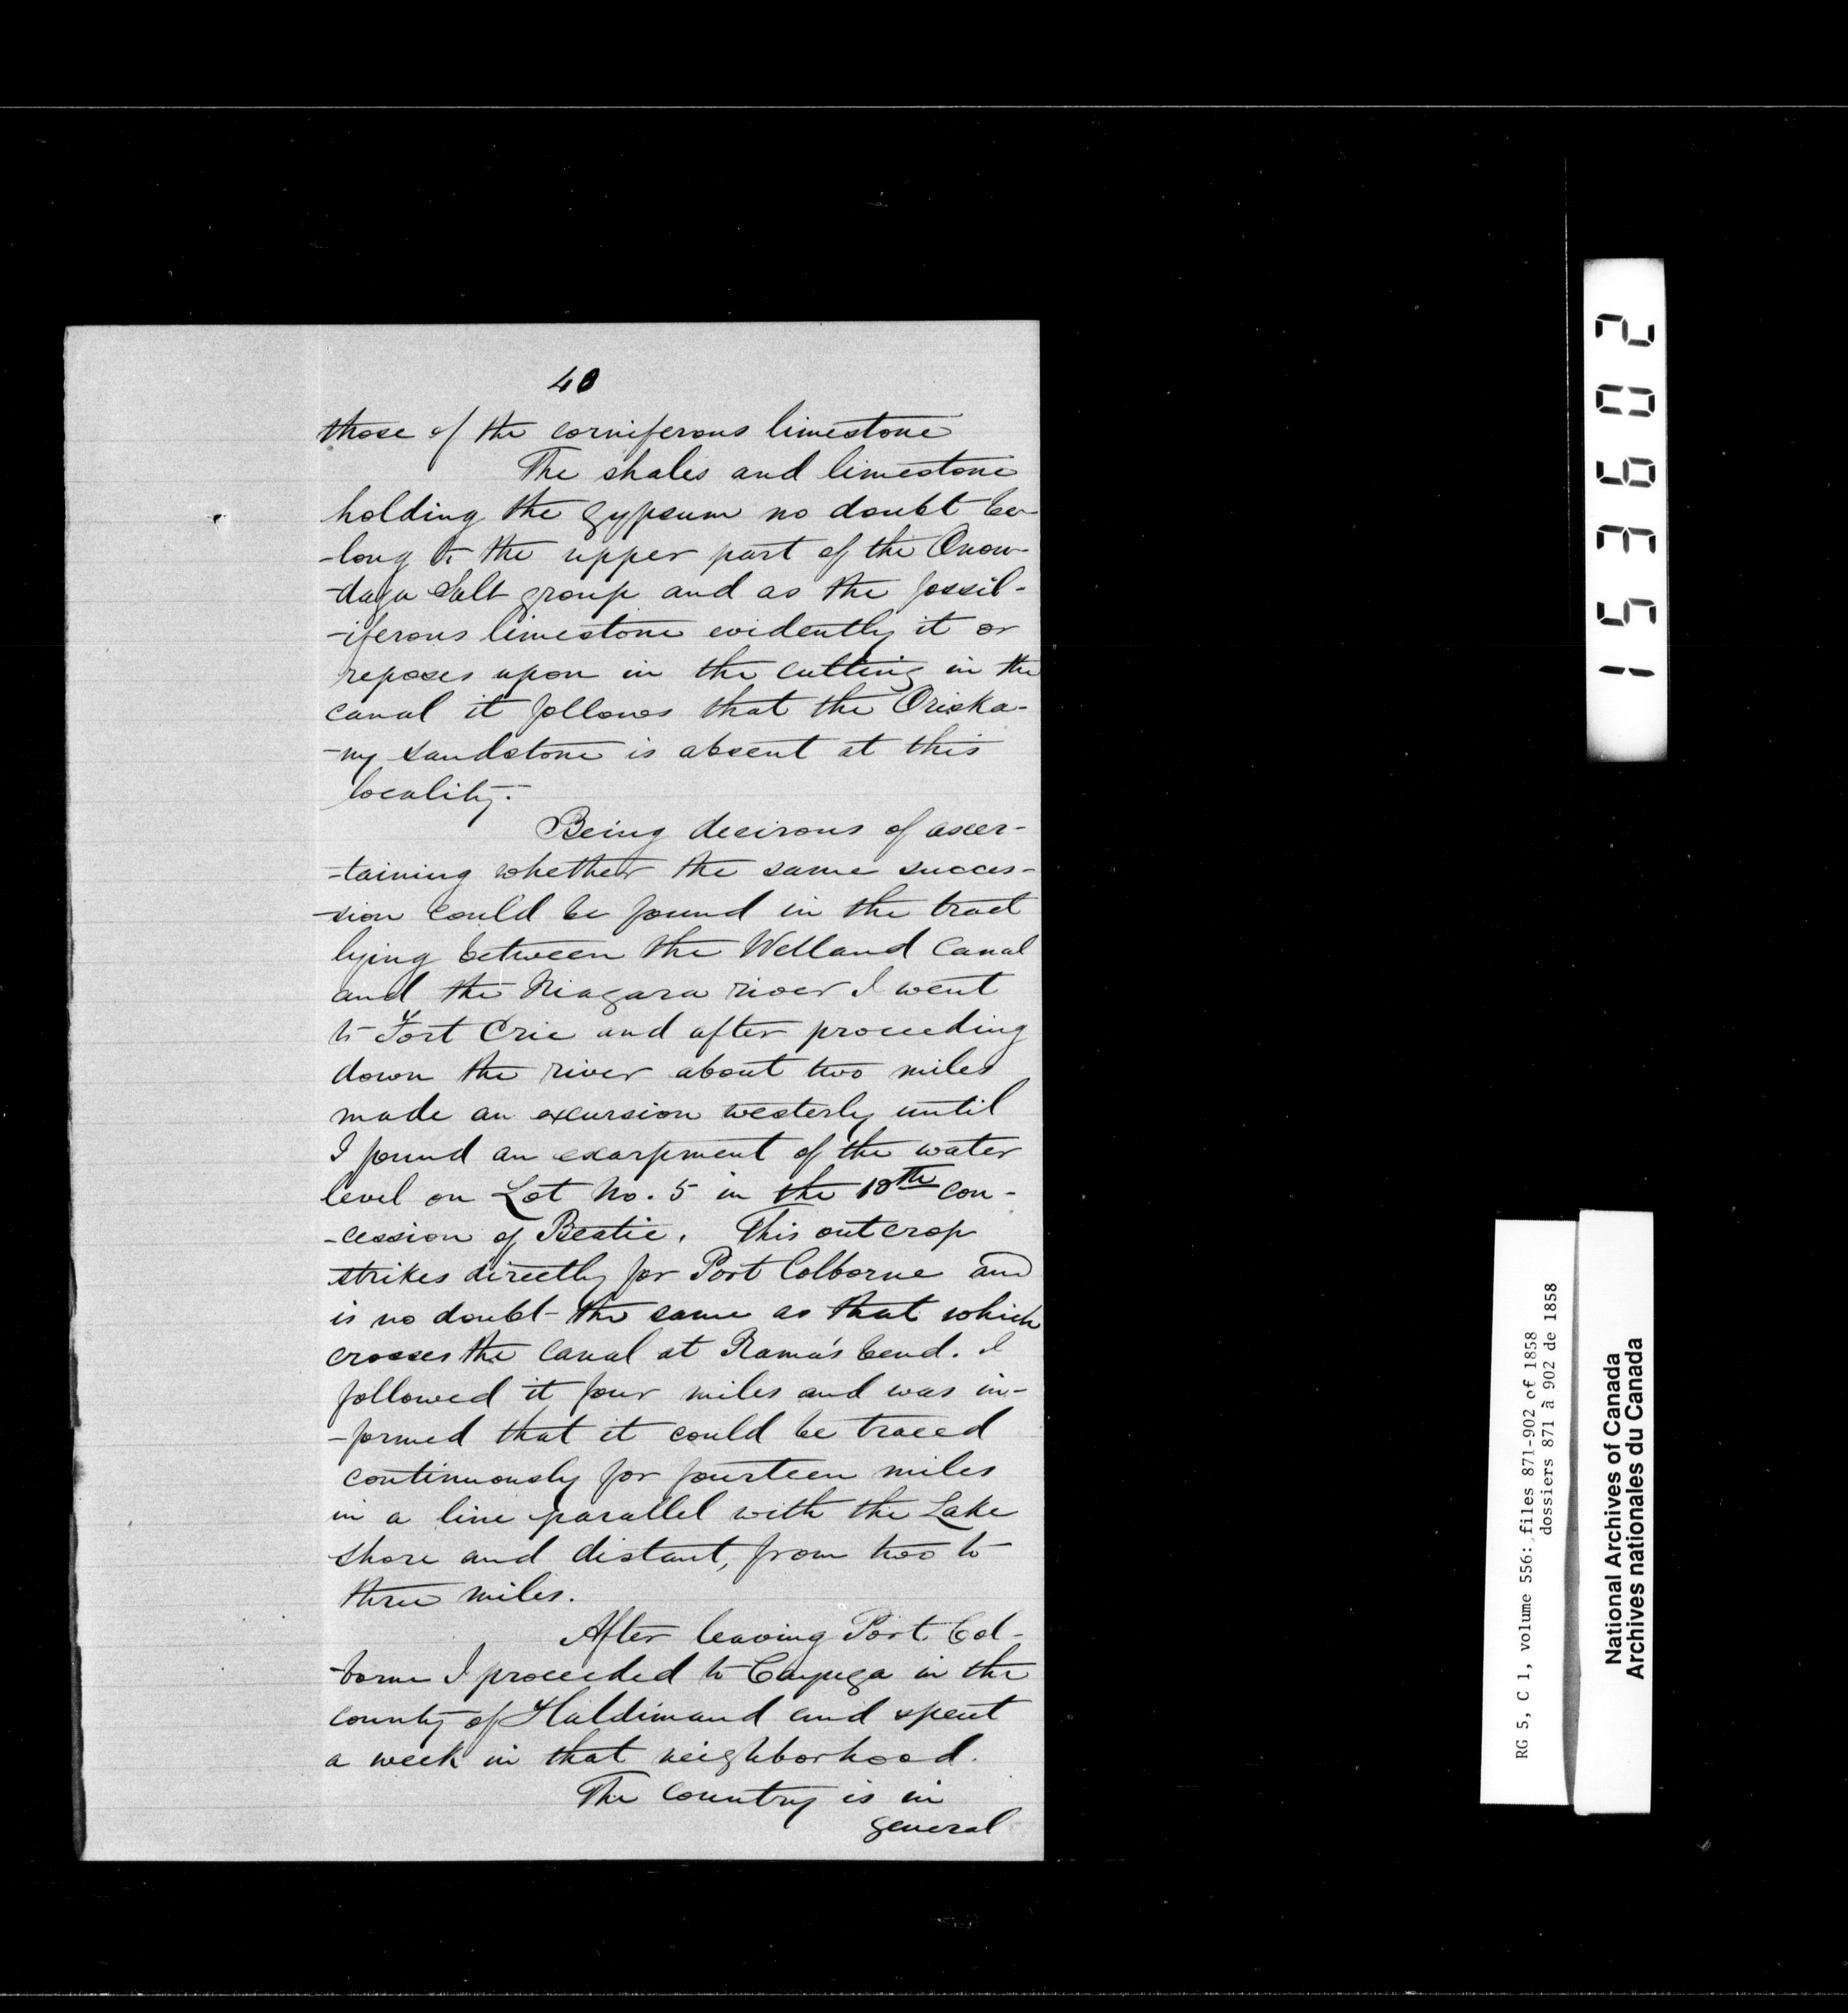 40
those of the corniferous limestone
The shales and limestone
holding the gypsum no doubt be-
-long to the upper part of the Onon-
-daga Salt group and as the fossil-
-iferous limestone evidently it or
reposes upon in the cutting in the
canal it follows that the Oriska-
-ny sandstone is absent at this
locality.
Being desirous of ascer-
-taining whether the same succes-
-sion could be found in the tract
lying between the Welland Canal
and the Niagara river I went
to Fort Erie and after proceeding
down the river about two miles
made an excursion westerly until
I found an escarpment of the water
level on Lot No. 5 in the 10th con-
-cession of Beatie. This outcrop
strikes directly for Port Colborne and
is no doubt the same as that which
crosses the Canal at Rama's bend. I
followed it four miles and was in-
-formed that it could be traced
continuously for fourteen miles
in a line parallel with the Lake
shore and distant, from two to
three miles.
After leaving Port Col-
-borne I proceeded to Cayuga in the
county of Haldimand and spent
a week in that neighborhood.
The country is in
general
153602
RG 5, C 1, volume 556: files 871-902 of 1858
dossiers 871 à 902 de 1858
National Archives of Canada
Archives nationales du Canada